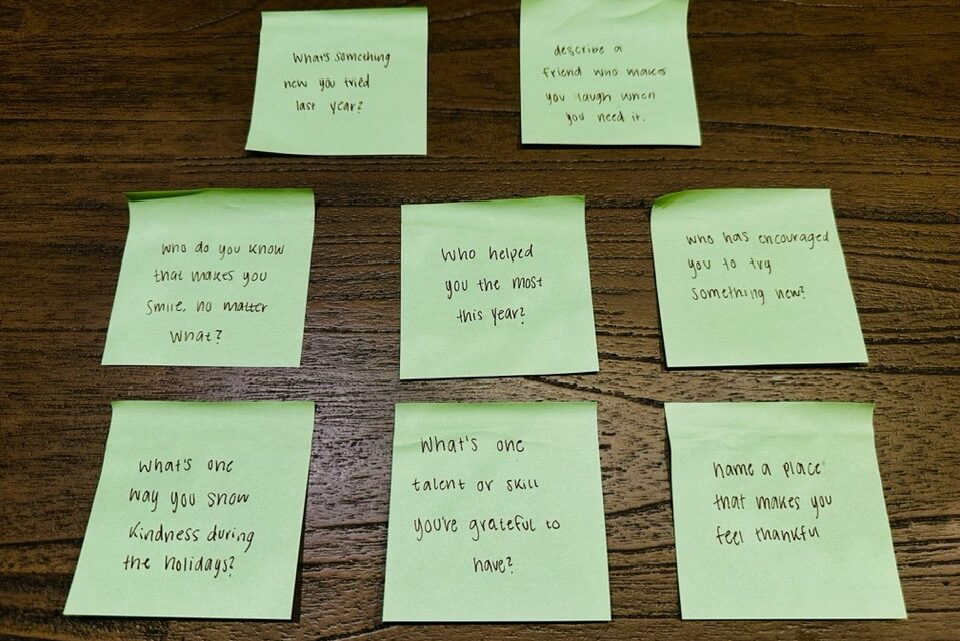 What's something
new you tried
last year?
describe a
friend who makes
you laugh when
you need it.
Who do you know
that makes you
smile, no matter
what?
Who helped
you the most
this year?
Who has encouraged
you to try
something new?
What's one
way you show
kindness during
the holidays?
What's one
talent or skill
you're grateful to
have?
name a place
that makes you
feel thankful